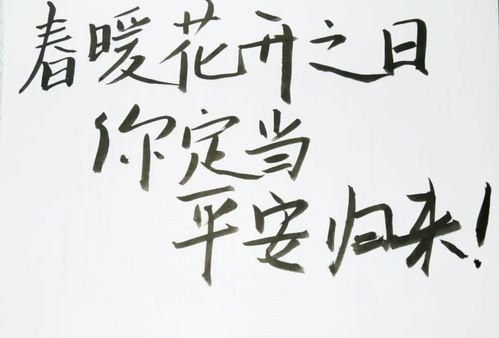 春暖花开之日
你定当
平安归来！